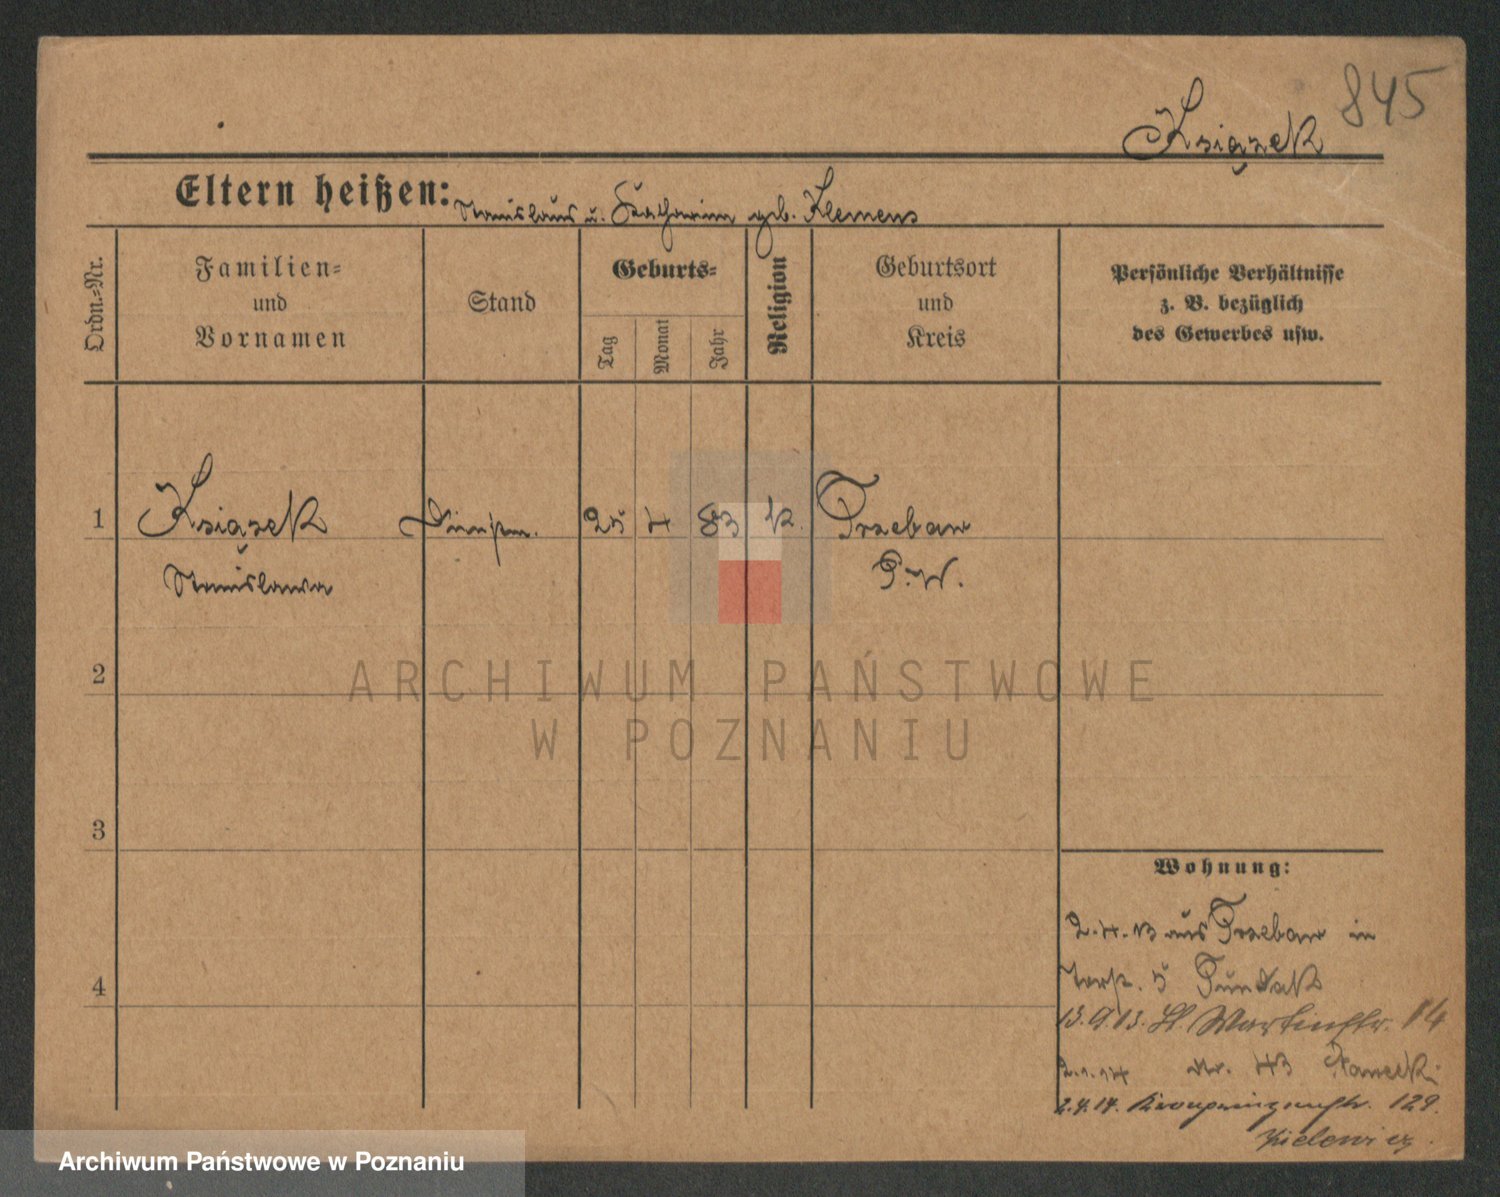 845
Książek
Eltern heißen: Stanislaus u. Katharina geb. Klemens
Ordn.-Nr.
Familien-
und
Vornamen
Stand
Geburts-
Tag
Monat
Jahr
Religion
Geburtsort
und
Kreis
Persönliche Verhältnisse
z. B. bezüglich
des Gewerbes usw.
1 Książek 25 4 83 k. Trzebaw
Stanislawa P.-W.
2
3
4
Wohnung:
2.4.13 aus Trzebaw in
5
13.9.13. St. Martinstr. 14
2.1.14 Nr. 43
2.4.14. Kronprinzenstr. 129.
ARCHIWUM PAŃSTWOWE
W POZNANIU
Archiwum Państwowe w Poznaniu